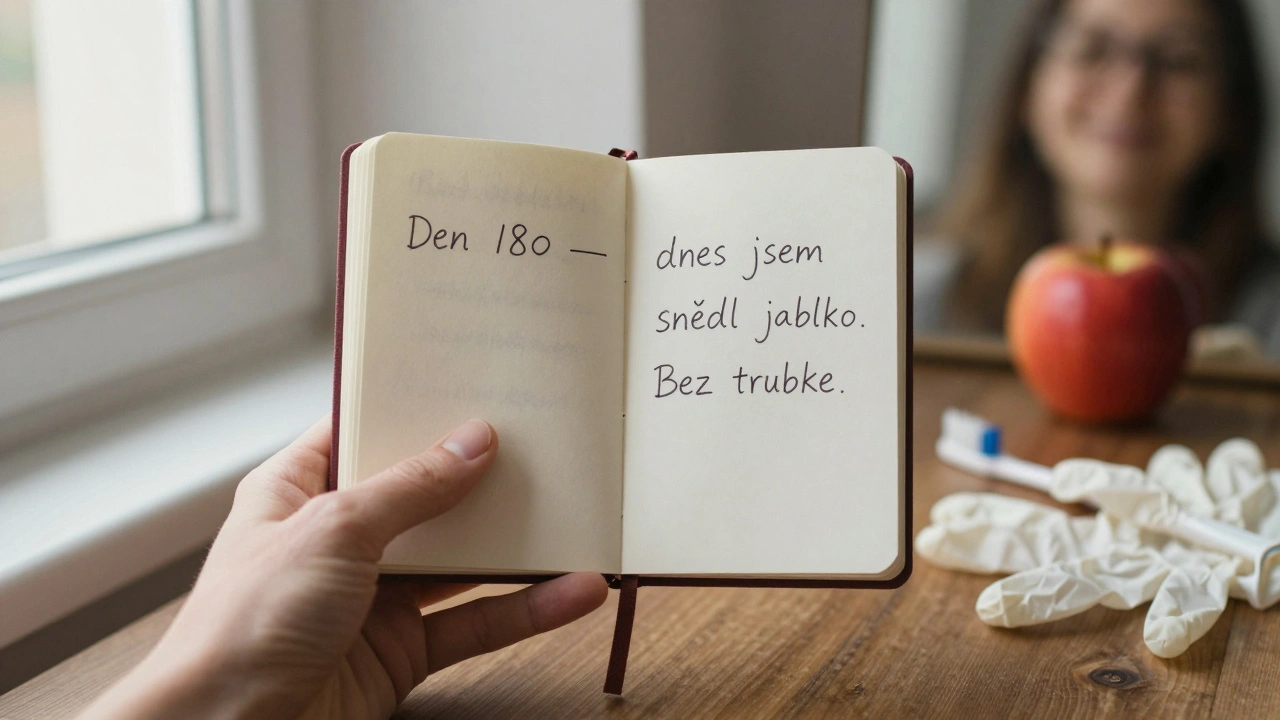 Den 180 —
dnes jsem
snědl jablko.
Bez trubke.